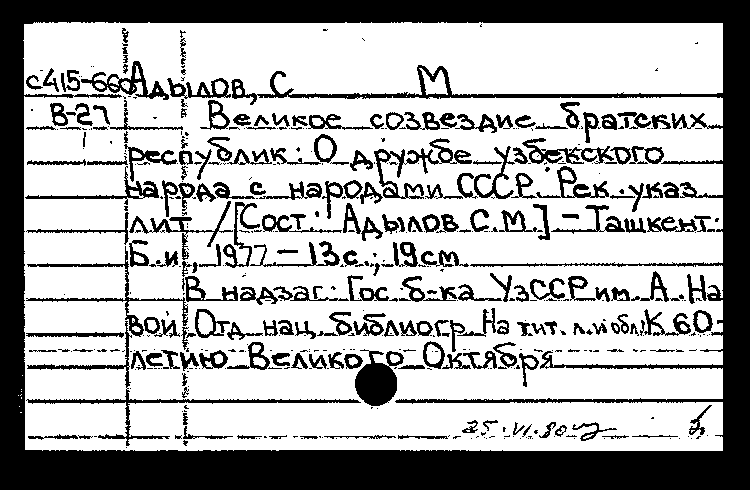 с415-660 Адылов, С М
В-27 Великое созвездие братских
республик: О дружбе узбекского
народа с народами СССР. Рек. указ.
лит. /[Сост.: Адылов С.М.] - Ташкент:
Б.и., 1977 - 13 с.; 19 см
В надзаг: Гос. б-ка УзССР им. А. На
вои. Отд. нац. библиогр. На тит. л. и обл: К 60-
летию Великого Октября
25.VI.80